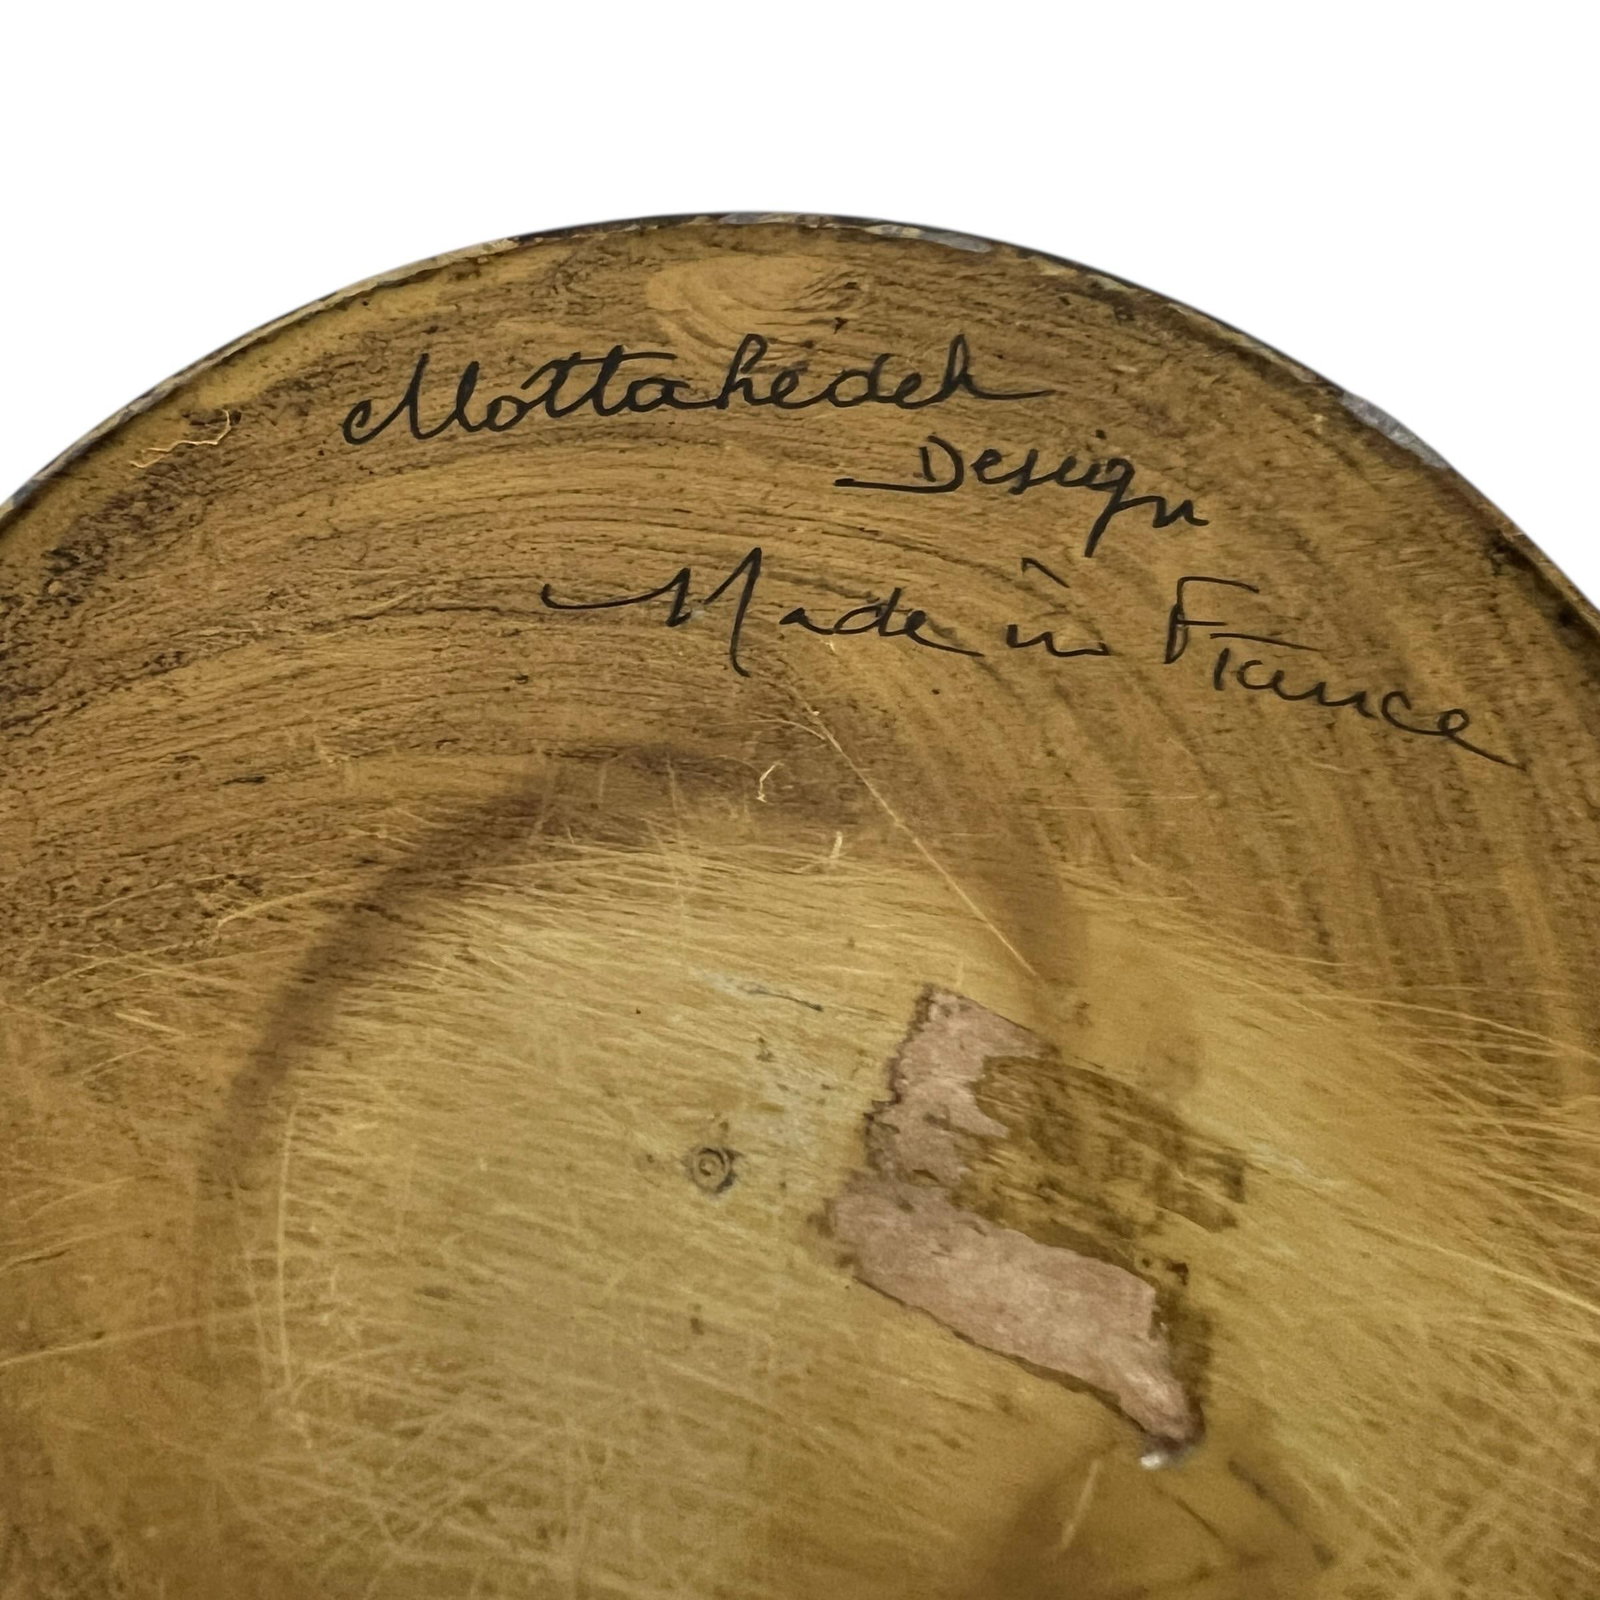 Mottahédeh
Design
Made in France